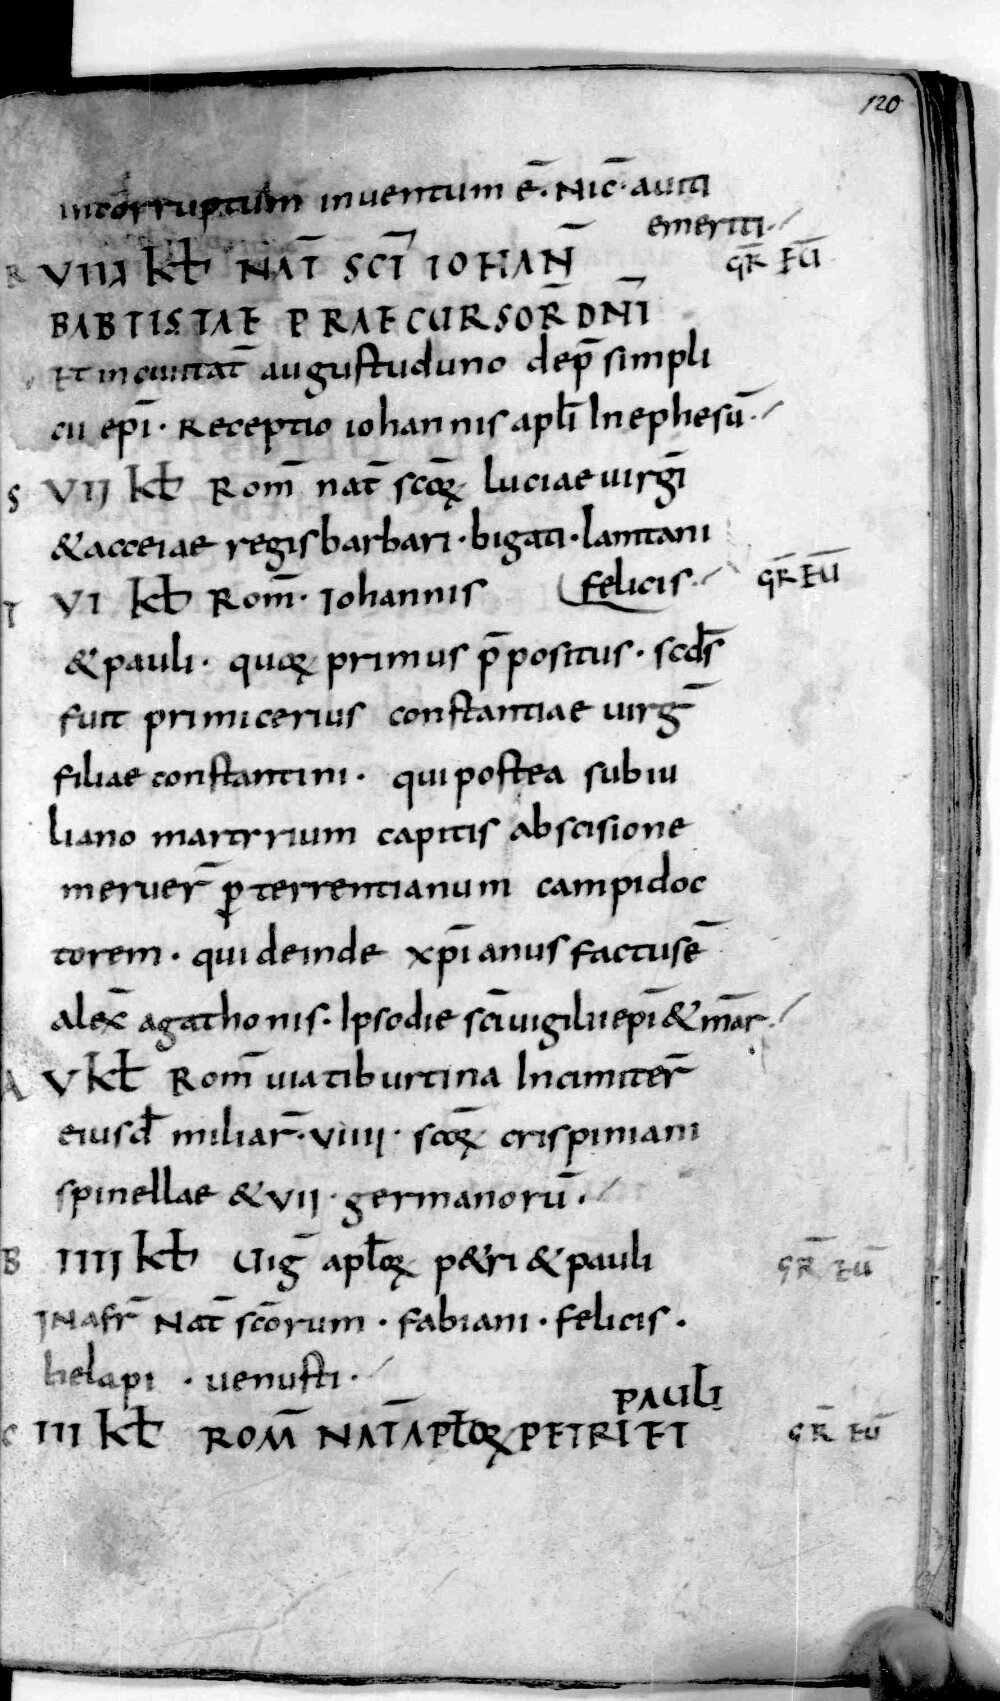 120
incorruptum inuentum ē· Nic̄· auiti
emeriti·
R VIII kł NAT̄ SC̄I IOHAN̄ GR̄ EŪ
BABTISTAE PRAECURSOR̄ DN̄I
Et in ciuitat̄ augustuduno dep̄ simpli
cii ep̄i· Receptio iohannis apłi In ephesū·
S VII kł Rom̄ nat̄ sc̄oꝝ luciae uirgī
& acceiae regis barbari· bigati· lamtani
felicis·
T VI kł Rom̄· Iohannis GR̄ EŪ
& pauli· quoꝝ primus p̄positus· scds̄
fuit primicerius constantiae uirḡ
filiae constantini· qui postea sub iu
liano martyrium capitis abscisione
meruer̄ ꝑ terrentianum campidoc
torem· qui deinde xp̄ianus factus ē
alex̄ agathonis· Ipso die sc̄i uigilii ep̄i & mār·
A V kł Rom̄ uia tiburtina In cimiter̄
eiusđ miliar̄· VIIII· sc̄oꝝ crispiniani
spinellae & VII· germanorū·
B IIII kł Uiḡ apłoꝝ p&ri & pauli GR̄ EŪ
IN afr̄ Nat̄ sc̄orum· fabiani· felicis·
helapi· uenusti·
PAULI
C III kł ROM̄ NAT̄ APŁOꝝ PETRI ET GR̄ EŪ